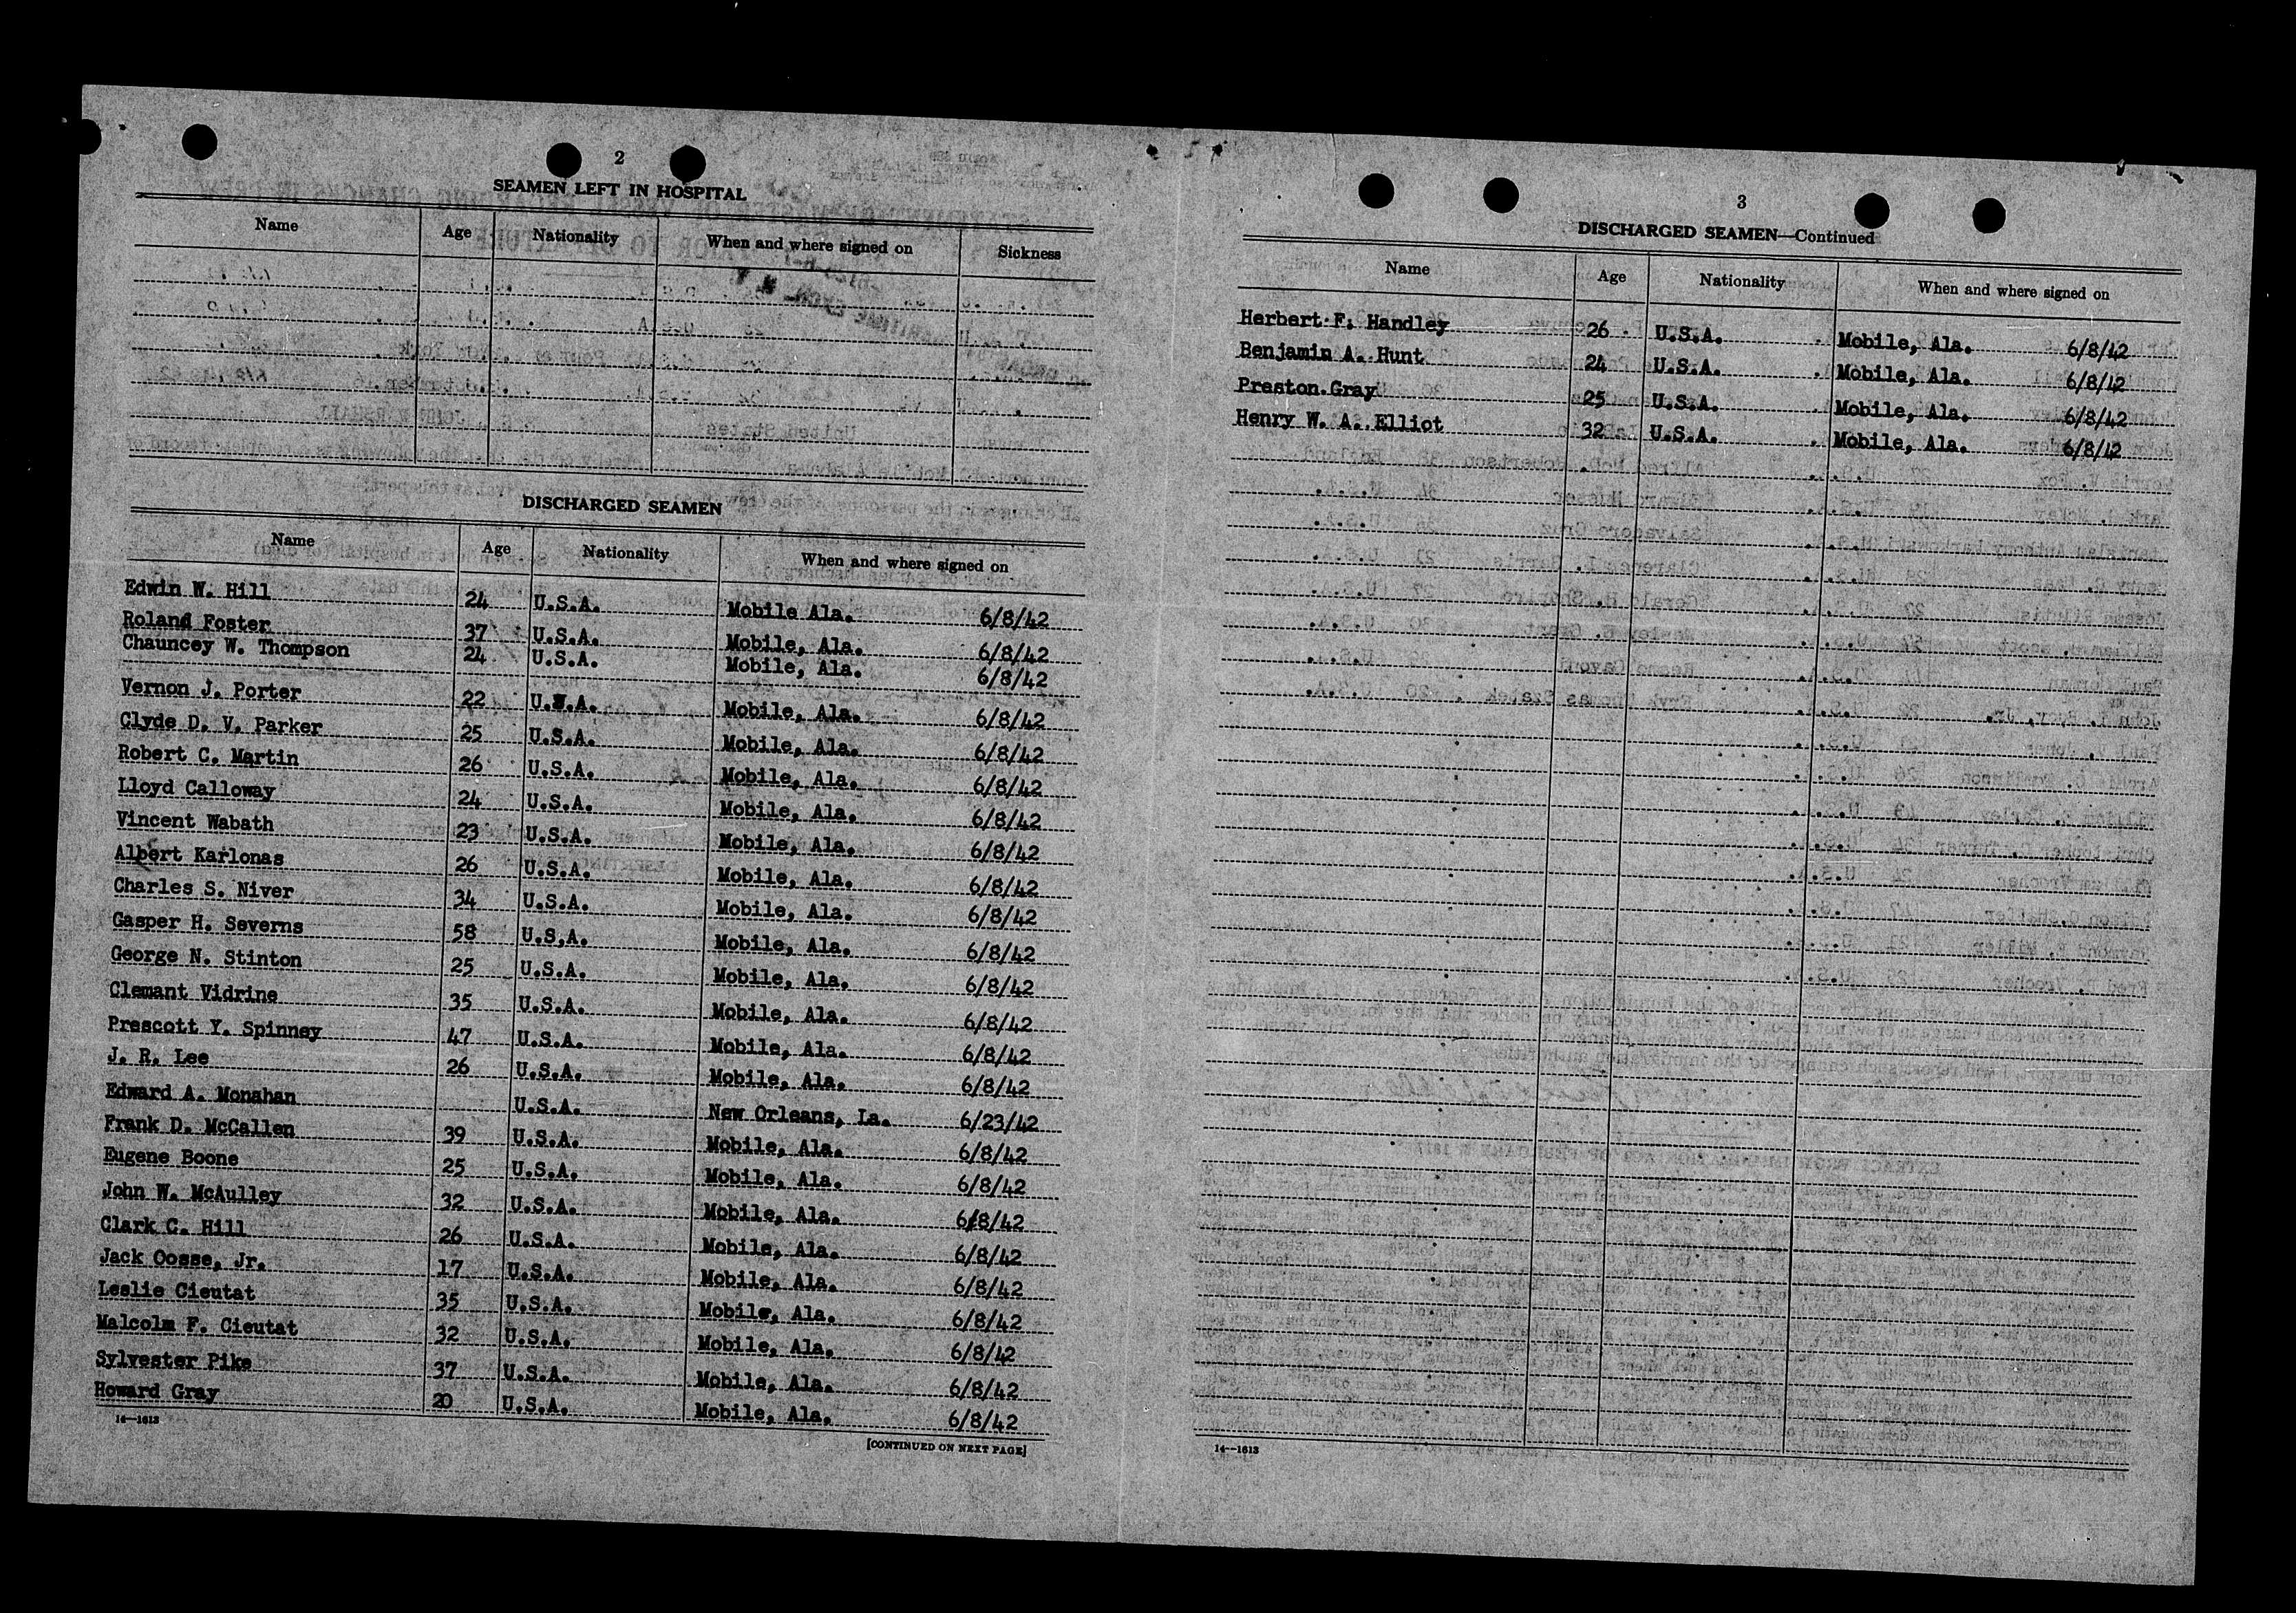 2
SEAMEN LEFT IN HOSPITAL
Name Age Nationality When and where signed on Sickness
DISCHARGED SEAMEN
Name Age Nationality When and where signed on
Edwin W. Hill 24 U.S.A. Mobile Ala. 6/8/42
Roland Foster 37 U.S.A. Mobile, Ala. 6/8/42
Chauncey W. Thompson 24 U.S.A. Mobile, Ala. 6/8/42
Vernon J. Porter 22 U.S.A. Mobile, Ala. 6/8/42
Clyde D. V. Parker 25 U.S.A. Mobile, Ala. 6/8/42
Robert C. Martin 26 U.S.A. Mobile, Ala. 6/8/42
Lloyd Calloway 24 U.S.A. Mobile, Ala. 6/8/42
Vincent Wabath 23 U.S.A. Mobile, Ala. 6/8/42
Albert Karlonas 26 U.S.A. Mobile, Ala. 6/8/42
Charles S. Niver 34 U.S.A. Mobile, Ala. 6/8/42
Gasper H. Severns 58 U.S,A. Mobile, Ala. 6/8/42
George N. Stinton 25 U.S.A. Mobile, Ala. 6/8/42
Clemant Vidrine 35 U.S.A. Mobile, Ala. 6/8/42
Prescott Y. Spinney 47 U.S.A. Mobile, Ala. 6/8/42
J. R. Lee 26 U.S.A. Mobile, Ala. 6/8/42
Edward A. Monahan U.S.A. New Orleans, La. 6/23/42
Frank D. McCallen 39 U.S.A. Mobile, Ala. 6/8/42
Eugene Boone 25 U.S.A. Mobile, Ala. 6/8/42
John W. McAulley 32 U.S.A. Mobile, Ala. 6/8/42
Clark C. Hill 26 U.S.A. Mobile, Ala. 6/8/42
Jack Oosse, Jr. 17 U.S.A. Mobile, Ala. 6/8/42
Leslie Cieutat 35 U.S.A. Mobile, Ala. 6/8/42
Malcolm F. Cieutat 32 U.S.A. Mobile, Ala. 6/8/42
Sylvester Pike 37 U.S.A. Mobile, Ala. 6/8/42
Howard Gray 20 U.S.A. Mobile, Ala. 6/8/42
14—1613
[CONTINUED ON NEXT PAGE]
3
DISCHARGED SEAMEN—Continued
Name Age Nationality When and where signed on
Herbert F. Handley 26 U.S.A. Mobile, Ala. 6/8/42
Benjamin A. Hunt 24 U.S.A. Mobile, Ala. 6/8/42
Preston Gray 25 U.S.A. Mobile, Ala. 6/8/42
Henry W. A. Elliot 32 U.S.A. Mobile, Ala. 6/8/42
14—1613